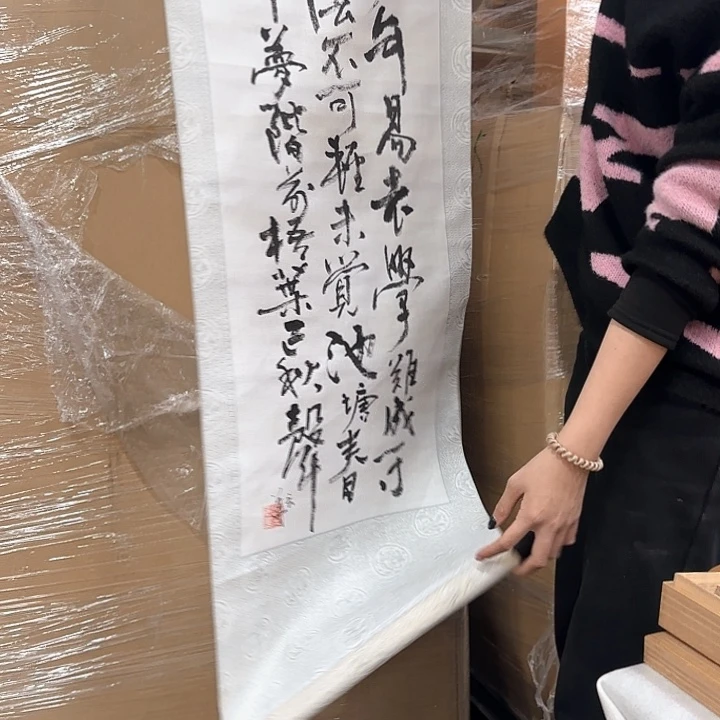 年易老學難成一寸
不可軽未覺池塘春
夢階前梧葉已秋聲